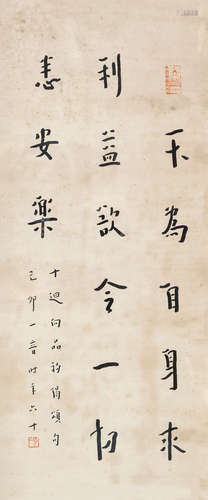 不為自身求
利益欲令一切
悉安樂
十迴向品初偈頌句
己卯一音时年六十